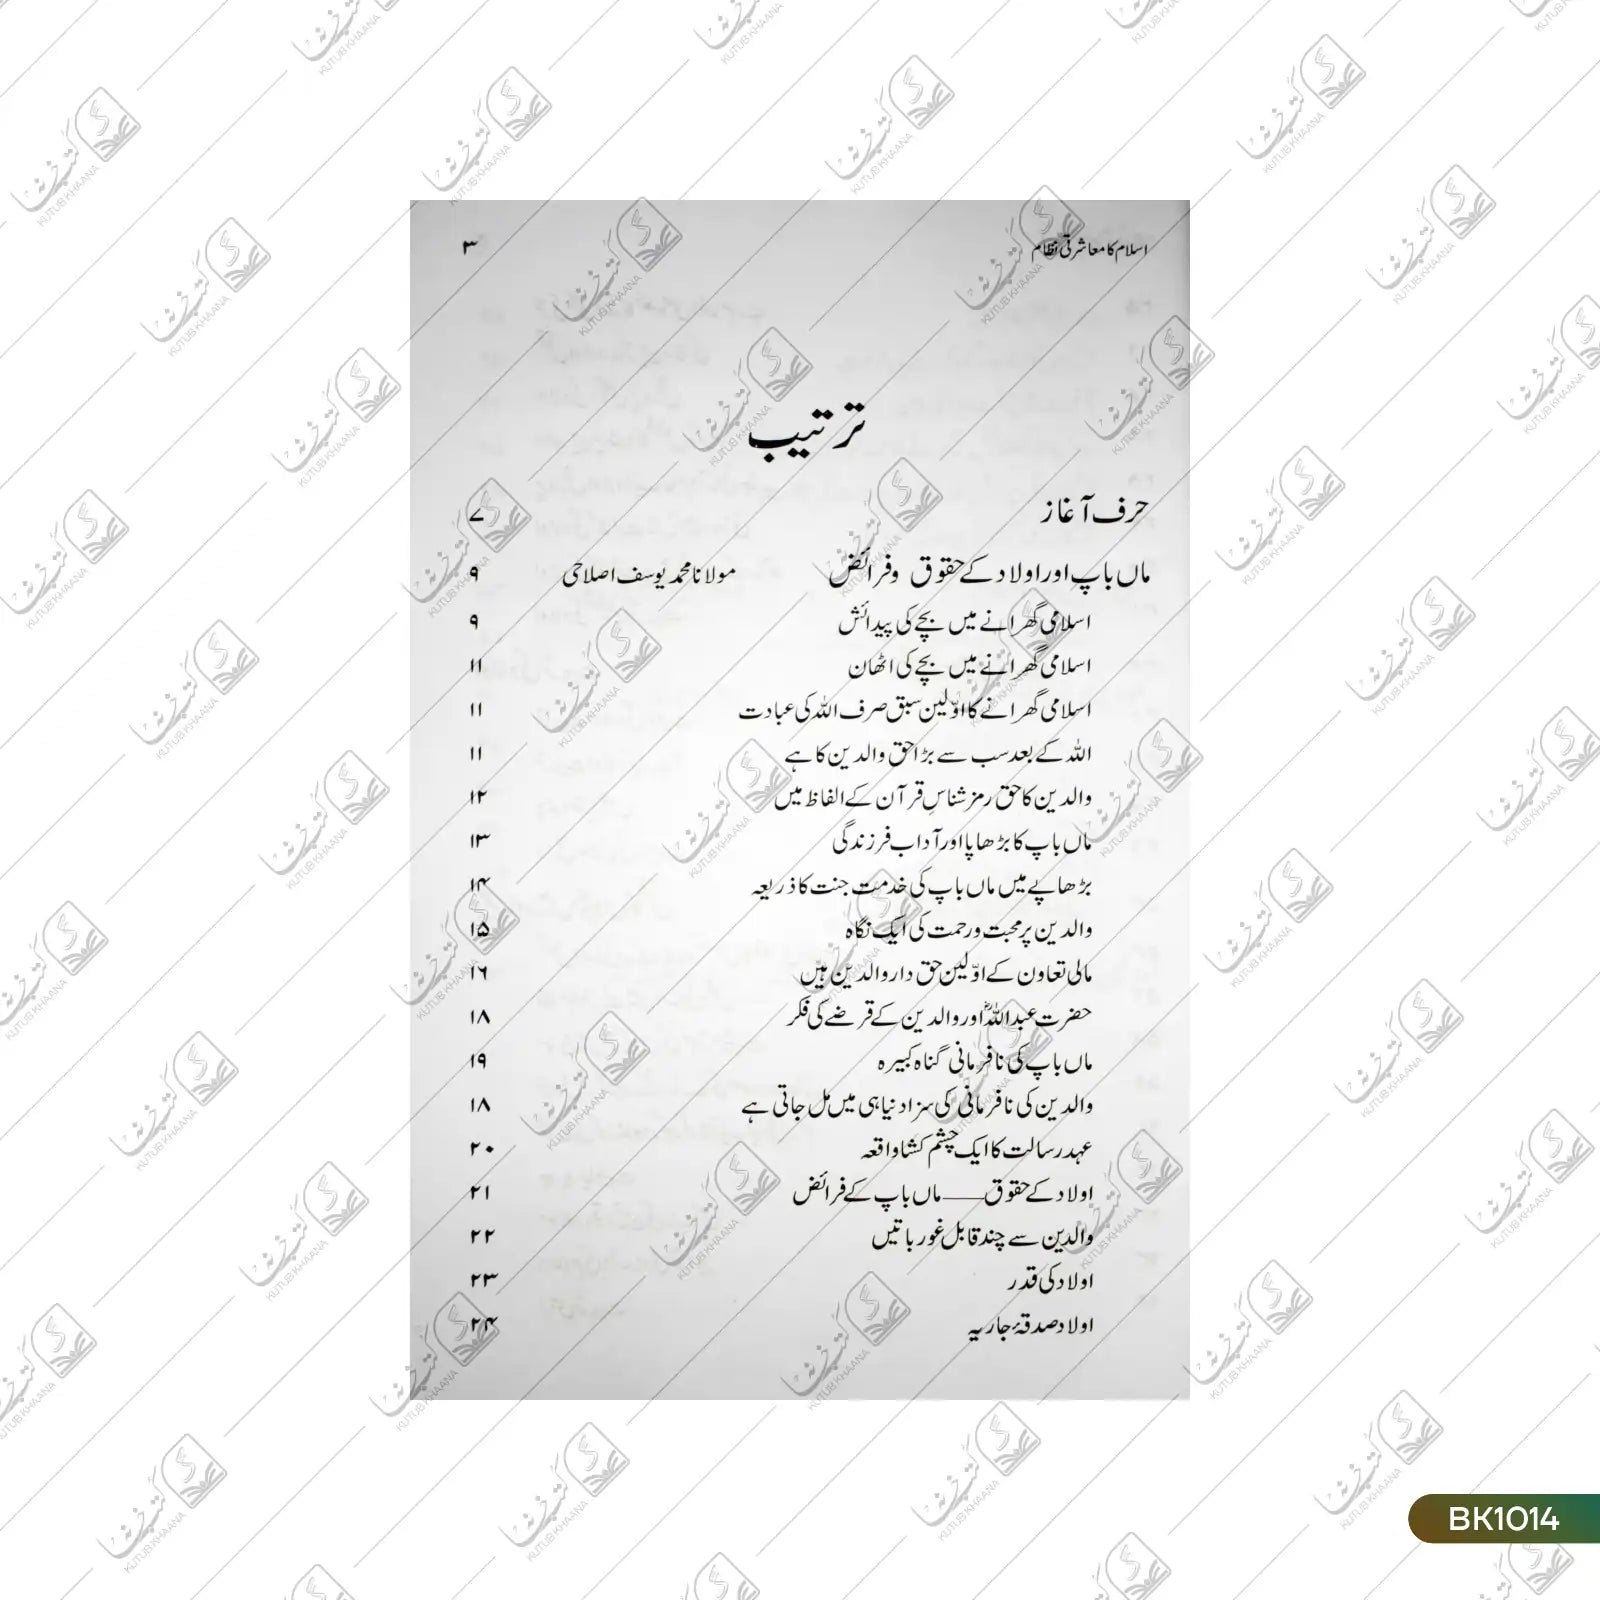 اسلام کا معاشرتی نظام ۳
ترتیب
حرف آغاز ۷
ماں باپ اور اولاد کے حقوق و فرائض مولانا محمد یوسف اصلاحی ۹
اسلامی گھرانے میں بچے کی پیدائش ۹
اسلامی گھرانے میں بچے کی اٹھان ۱۱
اسلامی گھرانے کا اوّلین سبق صرف اللہ کی عبادت ۱۱
اللہ کے بعد سب سے بڑا حق والدین کا ہے ۱۱
والدین کا حق رمز شناسِ قرآن کے الفاظ میں ۱۲
ماں باپ کا بڑھاپا اور آداب فرزندگی ۱۳
بڑھاپے میں ماں باپ کی خدمت جنت کا ذریعہ ۱۴
والدین پر محبت و رحمت کی ایک نگاہ ۱۵
مالی تعاون کے اوّلین حق دار والدین ہیں ۱۶
حضرت عبداللہؓ اور والدین کے قرضے کی فکر ۱۸
ماں باپ کی نافرمانی گناہ کبیرہ ۱۹
والدین کی نافرمانی کی سزا دنیا ہی میں مل جاتی ہے ۱۸
عہد رسالت کا ایک چشم کشا واقعہ ۲۰
اولاد کے حقوق — ماں باپ کے فرائض ۲۱
والدین سے چند قابل غور باتیں ۲۲
اولاد کی قدر ۲۳
اولاد صدقۂ جاریہ ۲۴
BK1014
کتب خانہ
KUTUB KHAANA